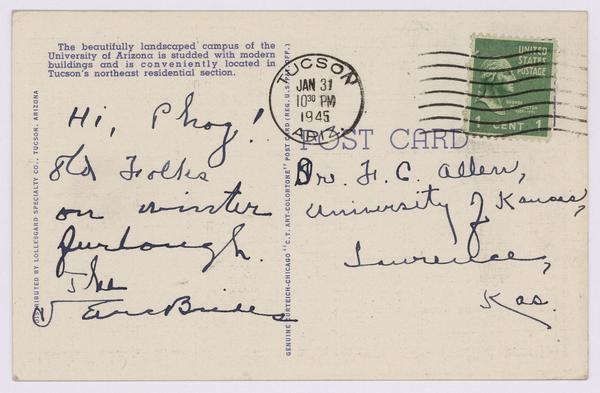 The beautifully landscaped campus of the
University of Arizona is studded with modern
buildings and is conveniently located in
Tucson's northeast residential section.
TUCSON
JAN 31
10 30 PM
1945
ARIZ.
UNITED
STATES
POSTAGE
1 CENT 1
POST CARD
Hi, Phog!
Old Folks
on winter
furlough.
The
Dr. F. C. Allen,
University of Kansas,
Lawrence,
Kas.
DISTRIBUTED BY LOLLESGARD SPECIALTY CO., TUCSON, ARIZONA
GENUINE CURTEICH-CHICAGO "C.T. ART-COLORTONE" POST CARD (REG. U.S. PAT. OFF.)